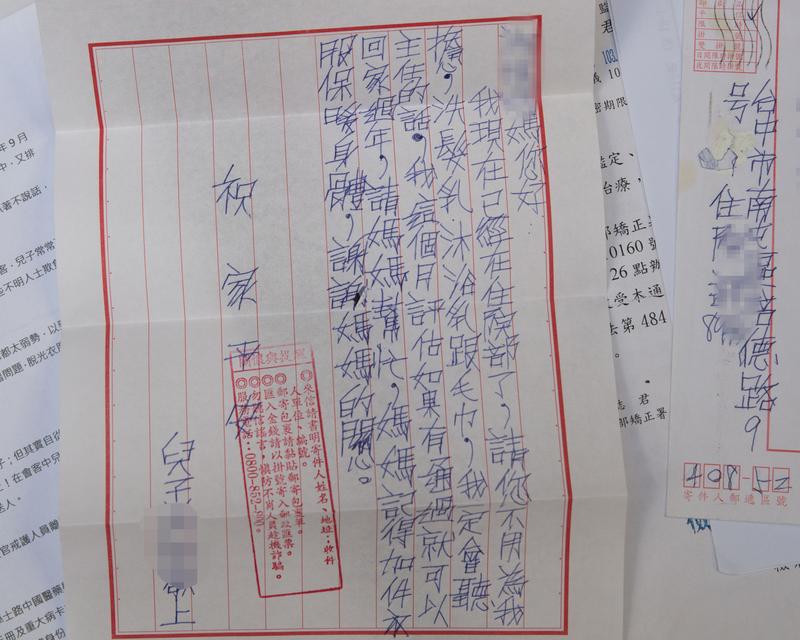 台中市南屯區
德路9
号
住
408-52
寄件人郵遞區號
媽您好
我現在已經在住院部了，請您不用為我
擔，洗髮乳沐浴乳跟毛巾，我定會聽
主的話。我這個月評估如果有通過就可以
回家過年，請媽媽幫忙，媽媽記得加件衣
服保暖身體，謝謝媽媽的關心。
祝家平安
兒子
敬上
關懷與提醒
◎來信請書明寄件人姓名、地址；收件
人單位、編號。
◎郵寄包裹請黏貼郵寄包裹單。
◎匯入金錢請以掛號寄入郵政匯票。
◎勿輕信謠言，慎防不肖人員趁機詐騙。
◎服務電話：0800-852-
君
103.
10
密期限
鑑定、
治療，
部矯正署
0160號
26點辦
受本通
法第484
。
志 君
部矯正署
年9月
中，又排
著不說話，
客，兒子常常
些不明人士欺
都太弱勢，以
問題，脫光衣
；但其實自從
！在會客中兒
送人。
官戒護人員
學士路中國醫藥
冊及重大病卡
身份